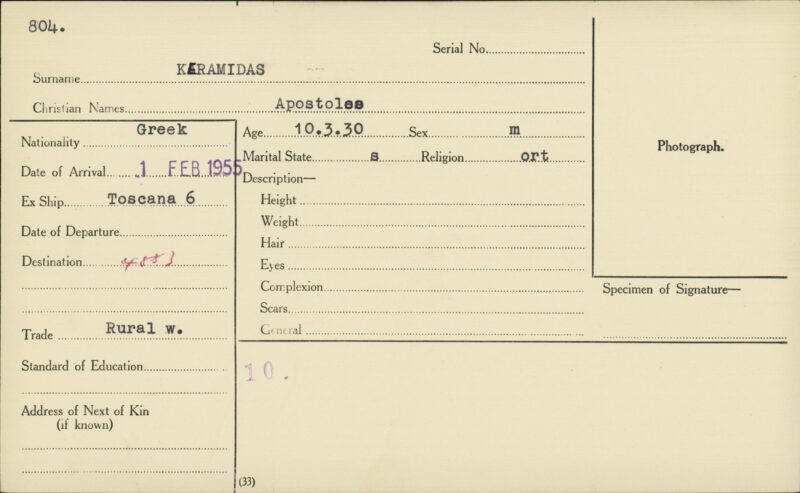 804.
Serial No.
Surname KERAMIDAS
Christian Names Apostolos
Nationality Greek
Date of Arrival 1 FEB 1955
Ex Ship Toscana 6
Date of Departure
Destination 4553
Trade Rural w.
Standard of Education
Address of Next of Kin
(if known)
Age 10.3.30 Sex m
Marital State s Religion ort
Description—
Height
Weight
Hair
Eyes
Complexion
Scars
General
10.
(33)
Photograph.
Specimen of Signature—